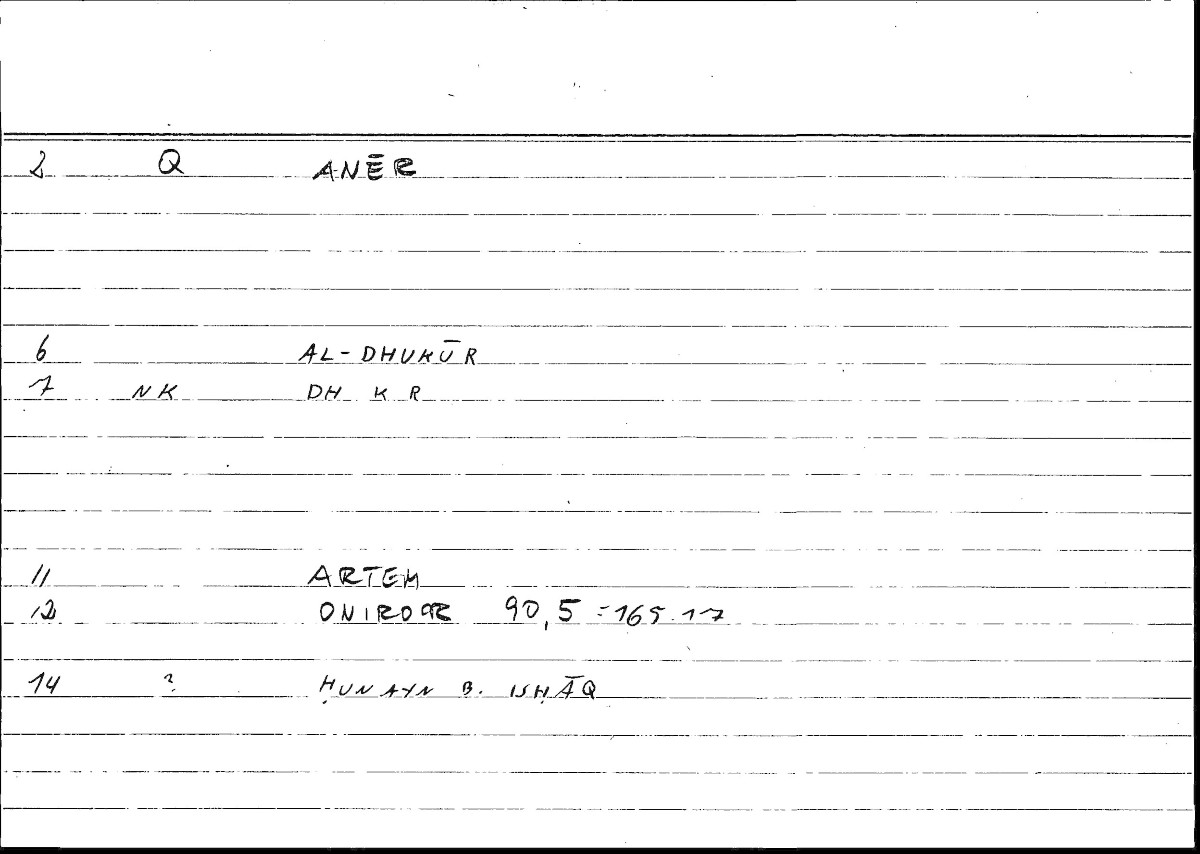 2 Q ANĒR
6 AL-DHUKŪR
7 NK DH K R
11 ARTEM
12 ONIROCR 90,5 = 165.17
14 ? ḤUNAYN B. ISḤĀQ